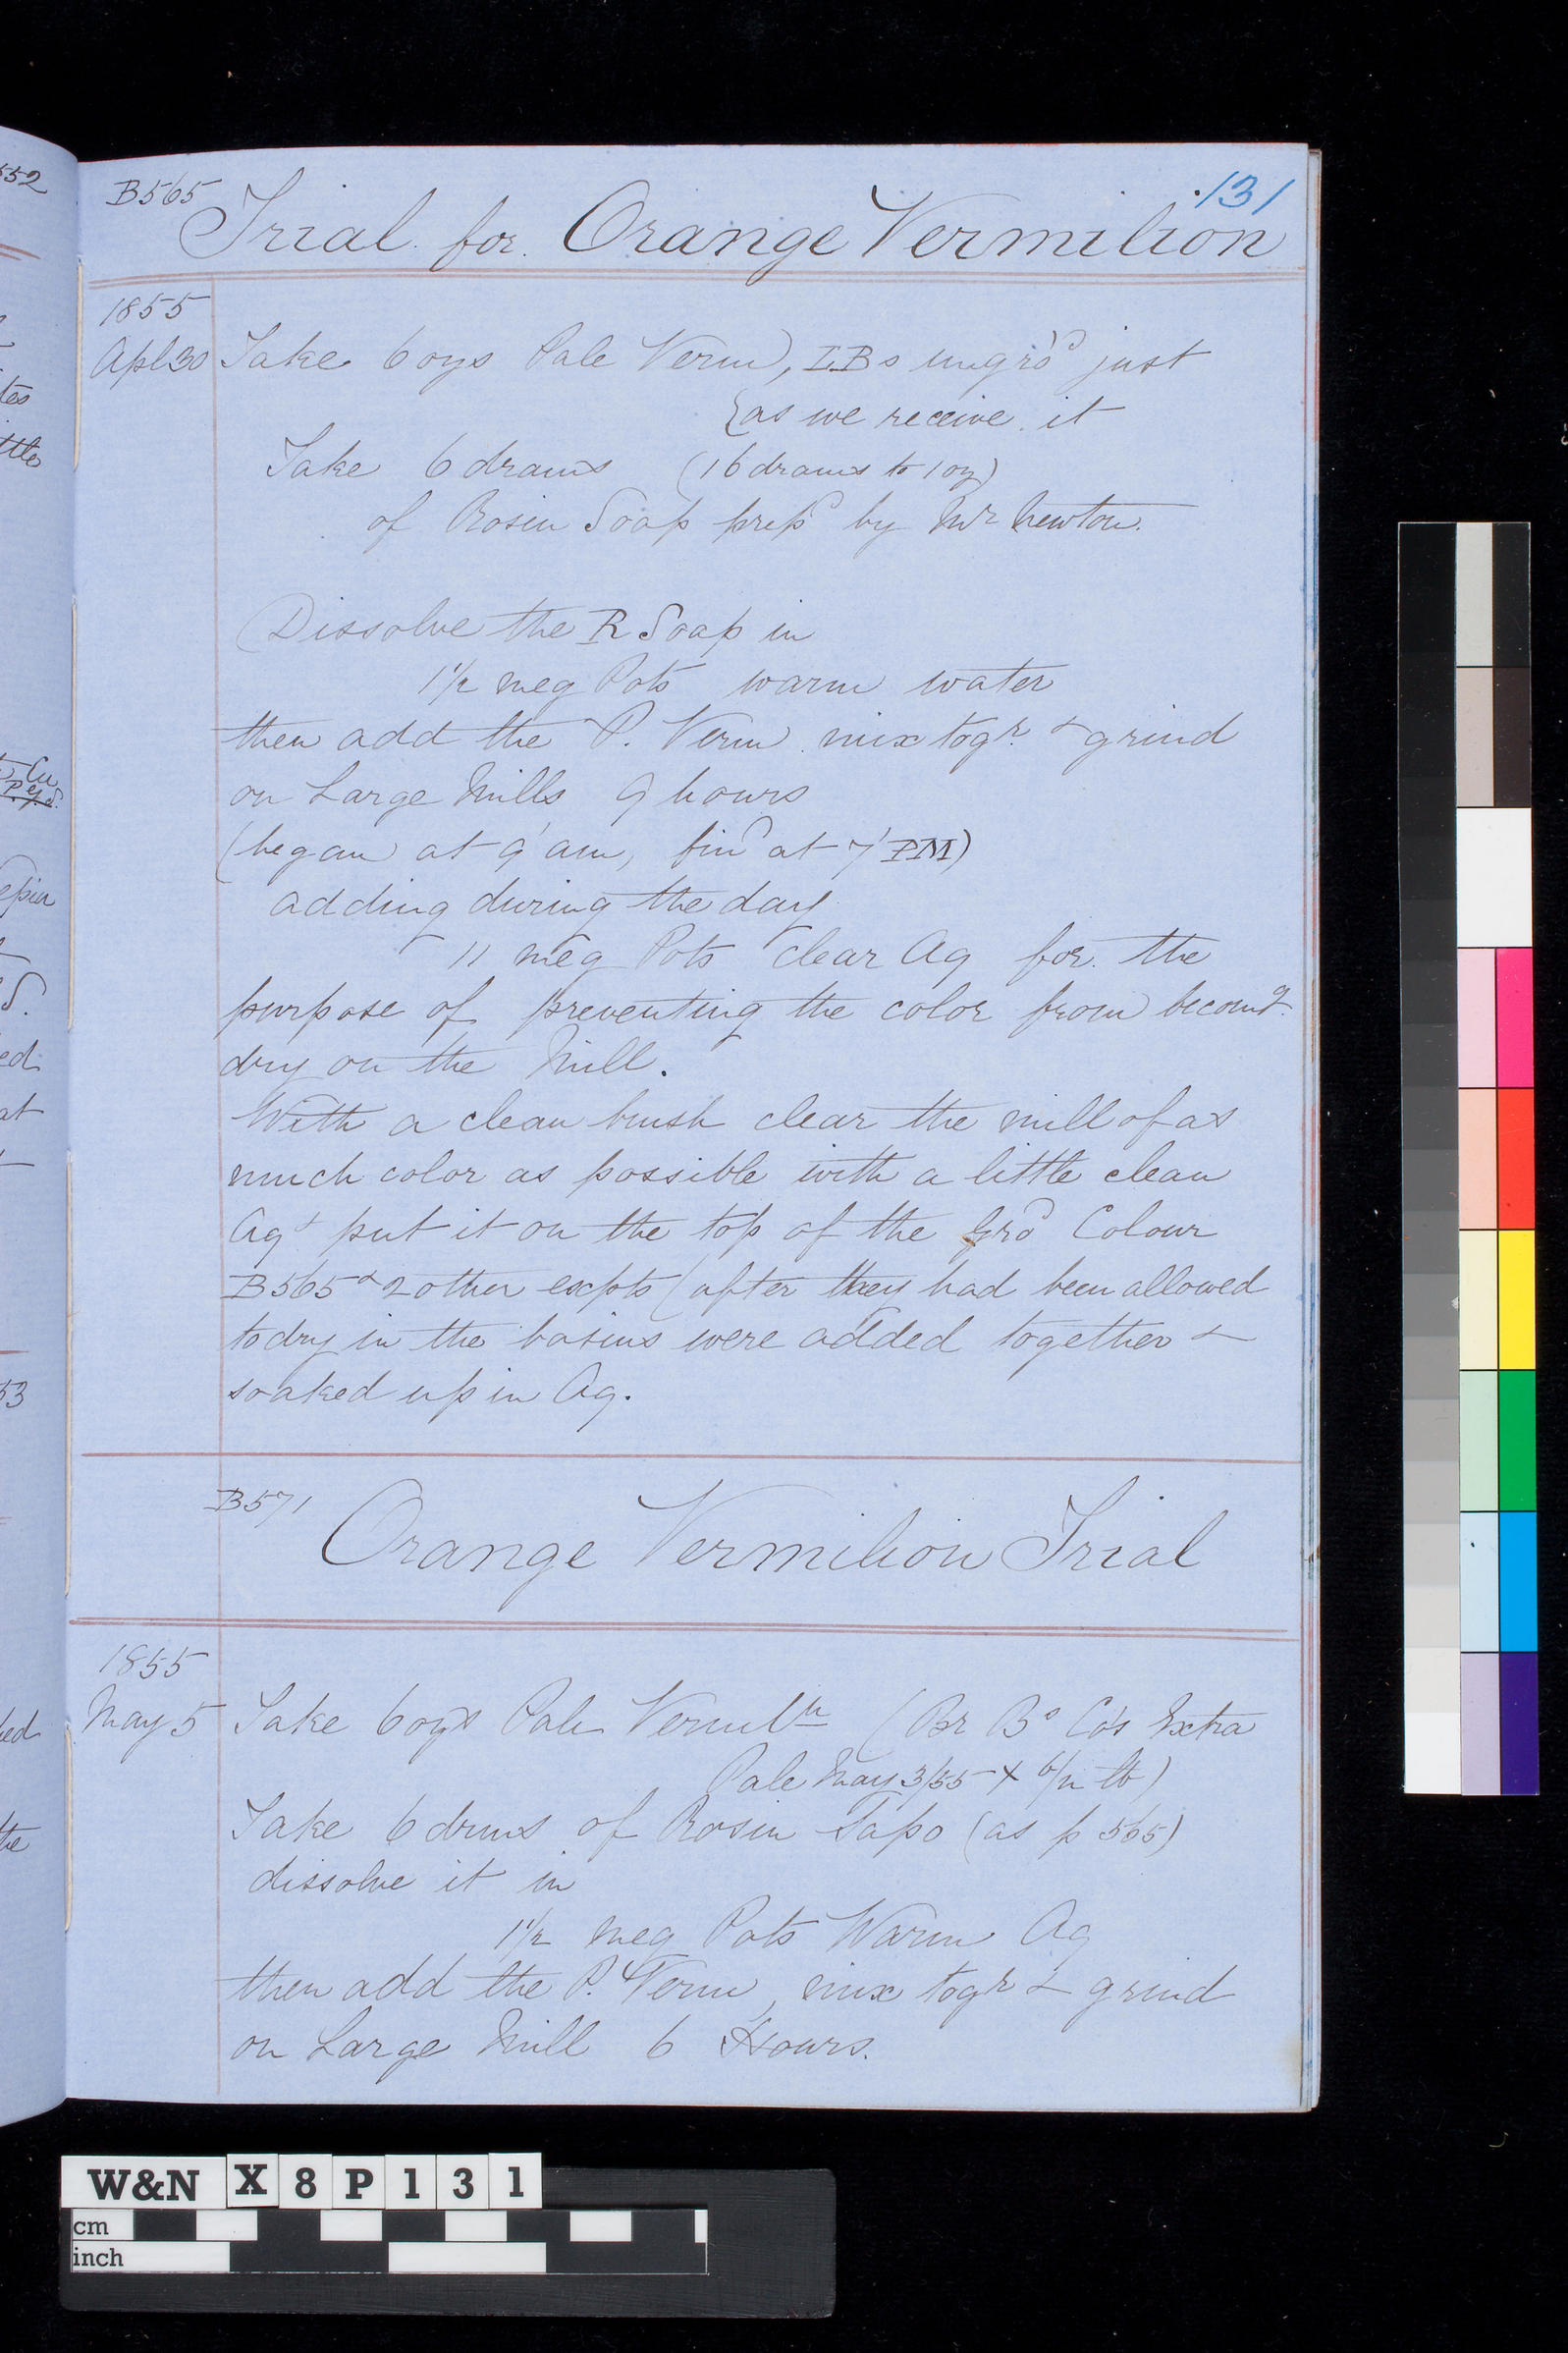 B565
131
Trial for Orange Vermilion
1855
Apl 30 Take 6 ozs Pale Verm, LBs ungrd just
{as we receive it
Take 6 drams (16 drams to 1 oz)
of Rosin Soap prepd by Mr Newton.
Dissolve the R Soap in
1½ meg Pots warm water
then add the P. Verm mix togr & grind
on Large Mills 9 hours
(began at 9 am, find at 7 PM)
adding during the day
11 meg Pots clear Aq for the
purpose of preventing the color from becomg
dry on the Mill.
With a clean brush clear the mill of as
much color as possible with a little clean
Aq & put it on the top of the Grd Colour
B565 & 2 other expts (after they had been allowed
to dry in the basins were added together &
soaked up in Aq.
B571
Orange Vermilion Trial
1855
May 5 Take 6 ozs Pale Vermln (Br Bo Co's Extra
Pale May 3/55 X 6/2 lb)
Take 6 drms of Rosin Sapo (as p 565)
dissolve it in
1½ meg Pots Warm Aq
then add the P. Verm, mix togr & grind
on Large Mill 6 Hours.
W&N X 8 P 1 3 1
cm
inch